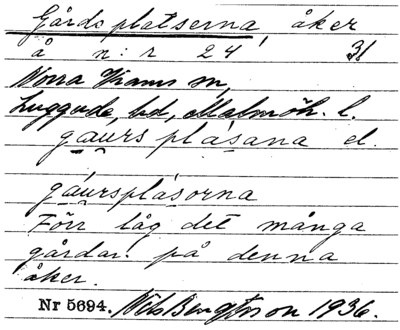 Gårdsplatserna, åker
å n:r 24 31
Norra Vrams sn,
Luggude hd, Malmöh. l.
gaursplásana el.
gáursplásorna
Förr låg det många
gårdar på denna
åker.
Nr 5694. Nils Bengtsson 1936.